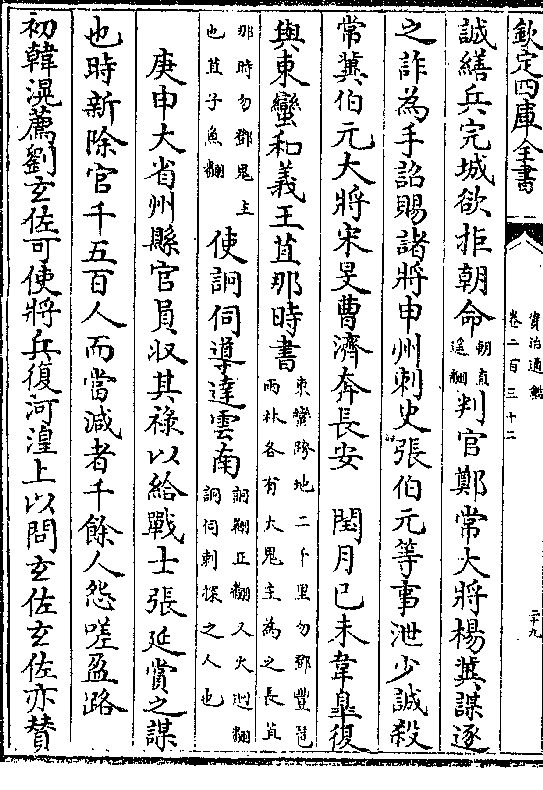 欽定四庫全書
資治通鑑
卷二百三十二
二十九
誠繕兵完城欲拒朝命朝直遥翻判官鄭常大將楊冀謀逐
之詐為手詔賜諸將申州刺史張伯元等事泄少誠殺
常冀伯元大將宋旻曹濟奔長安 閏月已未韋臯復
與東蠻和義王苴那時書東蠻跨地二千里勿鄧豐琶兩林各有大鬼主為之長苴
那時勿鄧鬼主也苴子魚翻使詗伺導達雲南詗翾正翻又火迥翻詗伺刺探之人也
庚申大省州縣官員収其祿以給戰士張延賞之謀
也時新除官千五百人而當減者千餘人怨嗟盈路
初韓滉薦劉玄佐可使將兵復河湟上以問玄佐玄佐亦賛